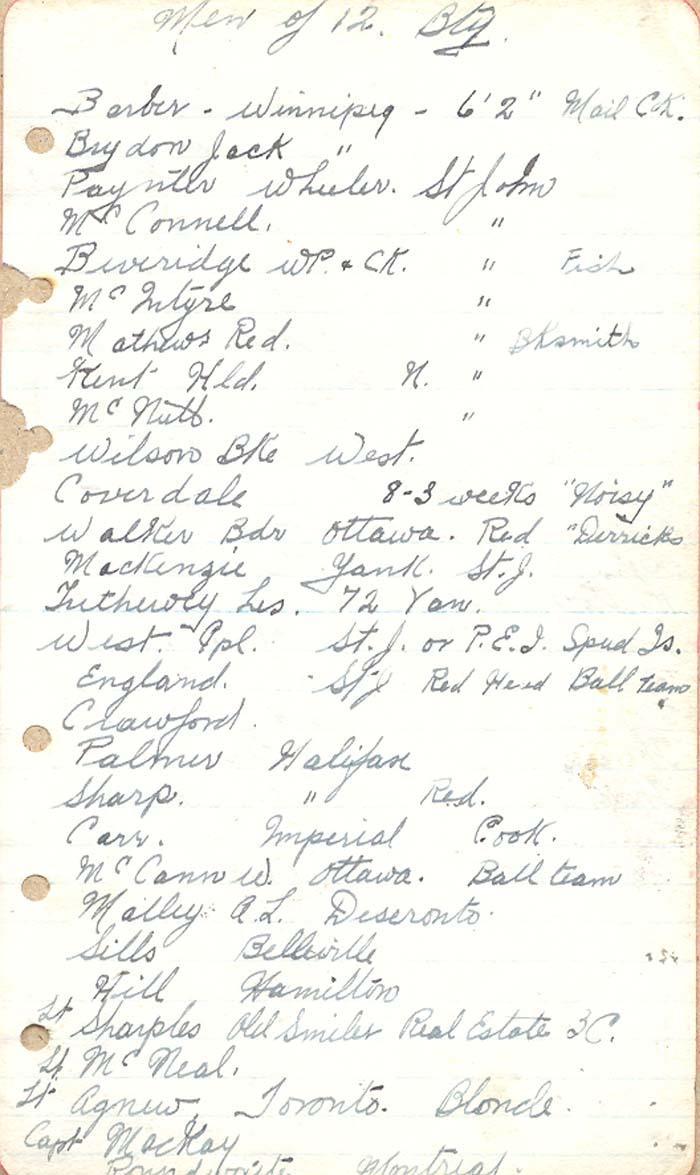 Men of 12. Bty.
Barber - Winnipeg - 6'2" Mail CK.
Brydon Jack "
Paynter Wheeler. St John
McConnell. "
Beveridge WP. & CK. " Fish
McIntyre "
Mathews Red. " Bksmith
Kent Hld. N. "
McNutt. "
Wilson Bke West.
Coverdale 8-3 weeks "Noisy"
Walker Bdr Ottawa. Red "Derricks
MacKenzie Yank. St. J.
Tetherley Les. 72 Van.
West. Cpl. St. J. or P.E.I. Spud Is.
England. St J Red Head Ball team
Crawford.
Palmer Halifax
Sharp. " Red.
Carr. Imperial Cook.
McCann W. Ottawa. Ball team
Malley A.L. Deseronto.
Sills Belleville
Hill Hamilton
Lt Sharples Old Smiler Real Estate BC.
Lt McNeal.
Lt Agnew Toronto. Blonde.
Capt MacKay
Montreal.